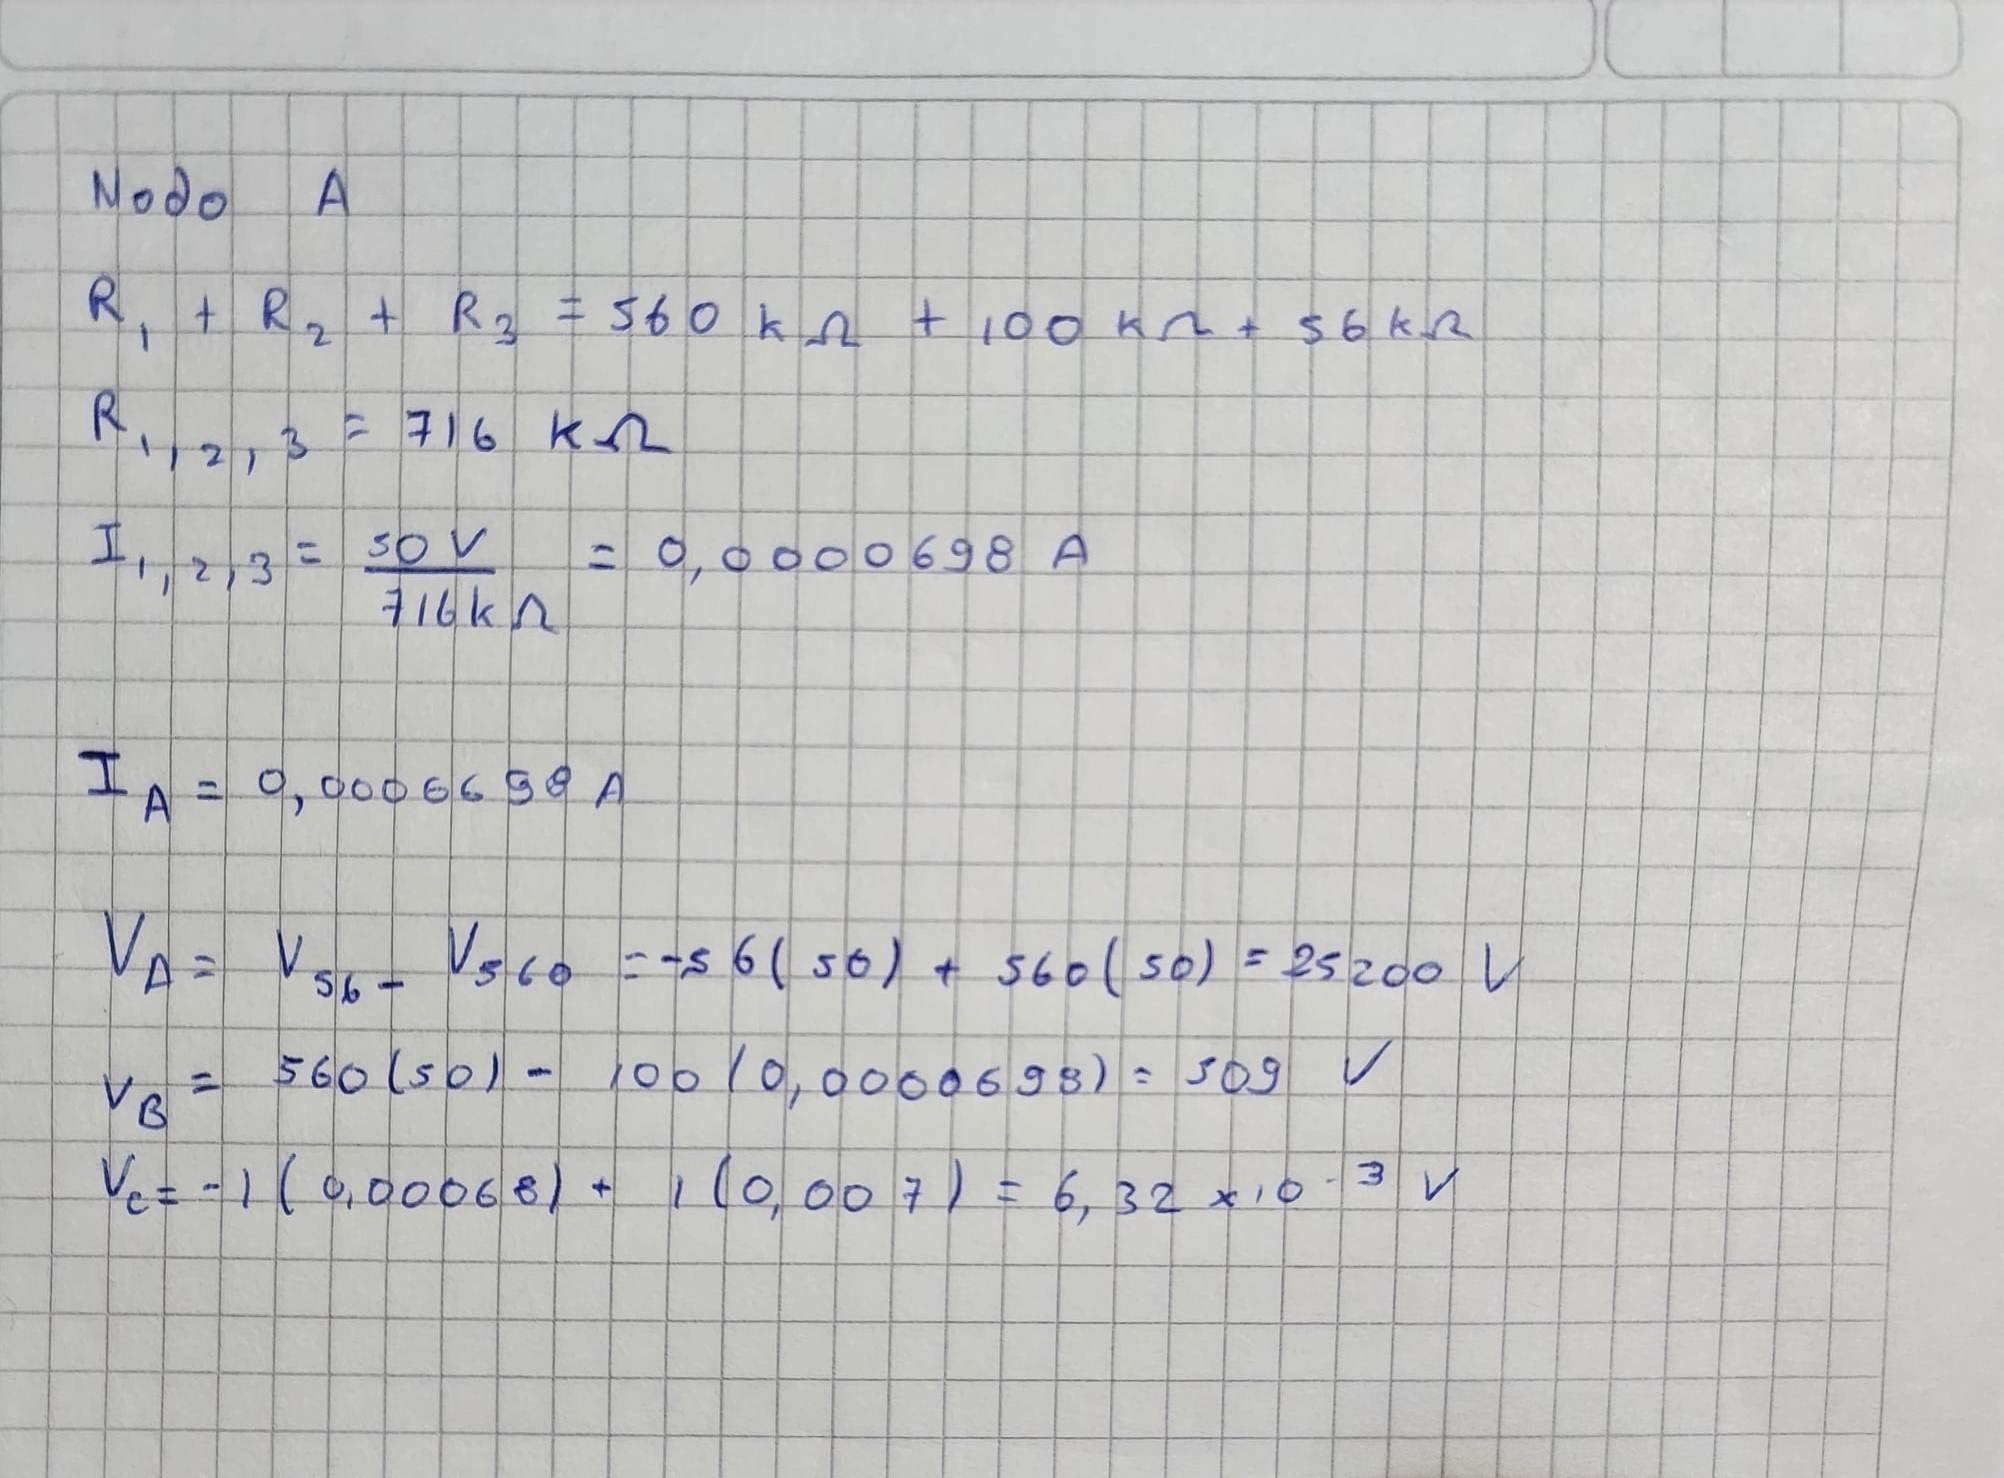 Nodo A
R₁ + R₂ + R₃ = 560 kΩ + 100 kΩ + 56 kΩ
R₁,₂,₃ = 716 kΩ
I₁,₂,₃ = 50 V / 716 kΩ = 0,0000698 A
I_A = 0,0006698 A
V_A = V₅₆ - V₅₆₀ = -56(50) + 560(50) = 25200 V
V_B = 560(50) - 100(0,0000698) = 509 V
V_C = -1(0,00068) + 1(0,007) = 6,32 x 10⁻³ V